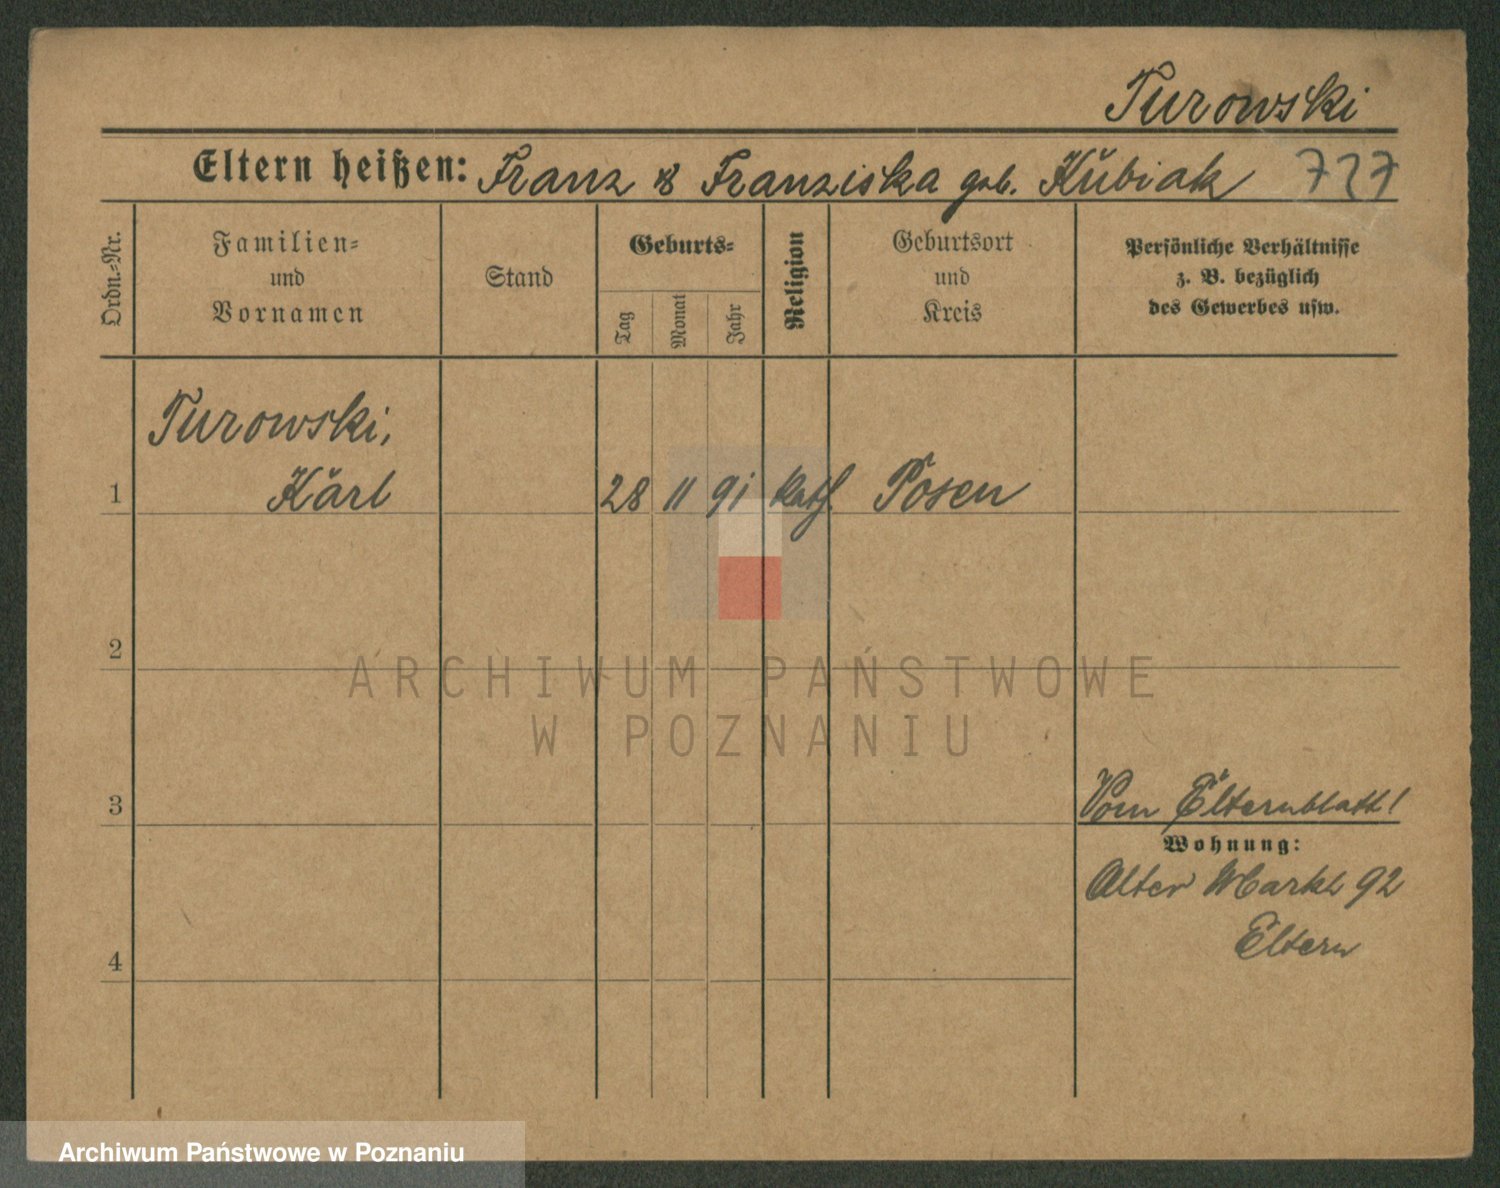 Turowski
Eltern heißen: Franz & Franziska geb. Kubiak 727
Ordn.-Nr.
Familien-
und
Vornamen
Stand
Geburts-
Tag
Monat
Jahr
Religion
Geburtsort
und
Kreis
Persönliche Verhältnisse
z. B. bezüglich
des Gewerbes usw.
Turowski,
1 Karl 28 11 91 kath. Posen
2
ARCHIWUM PAŃSTWOWE
W POZNANIU
3 Vom Elternblatt!
Wohnung:
Alter Markt 92
Eltern
4
Archiwum Państwowe w Poznaniu